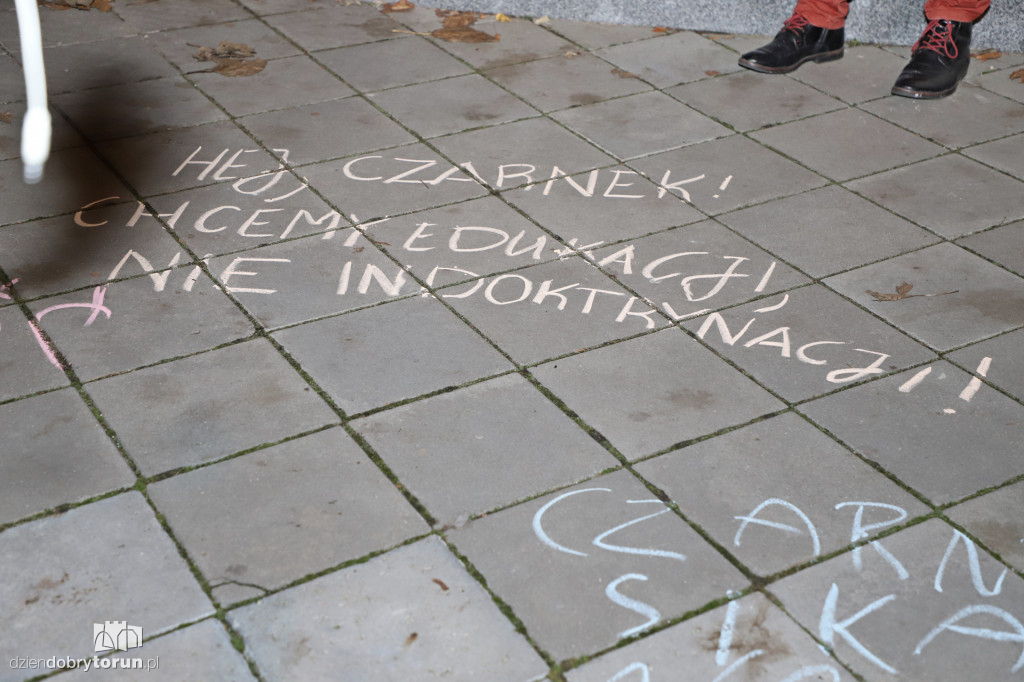 HEJ CZARNEK!
CHCEMY EDUKACJI
NIE INDOKTRYNACJI!!
CZARN
SIKA
dzień dobry toruń.pl